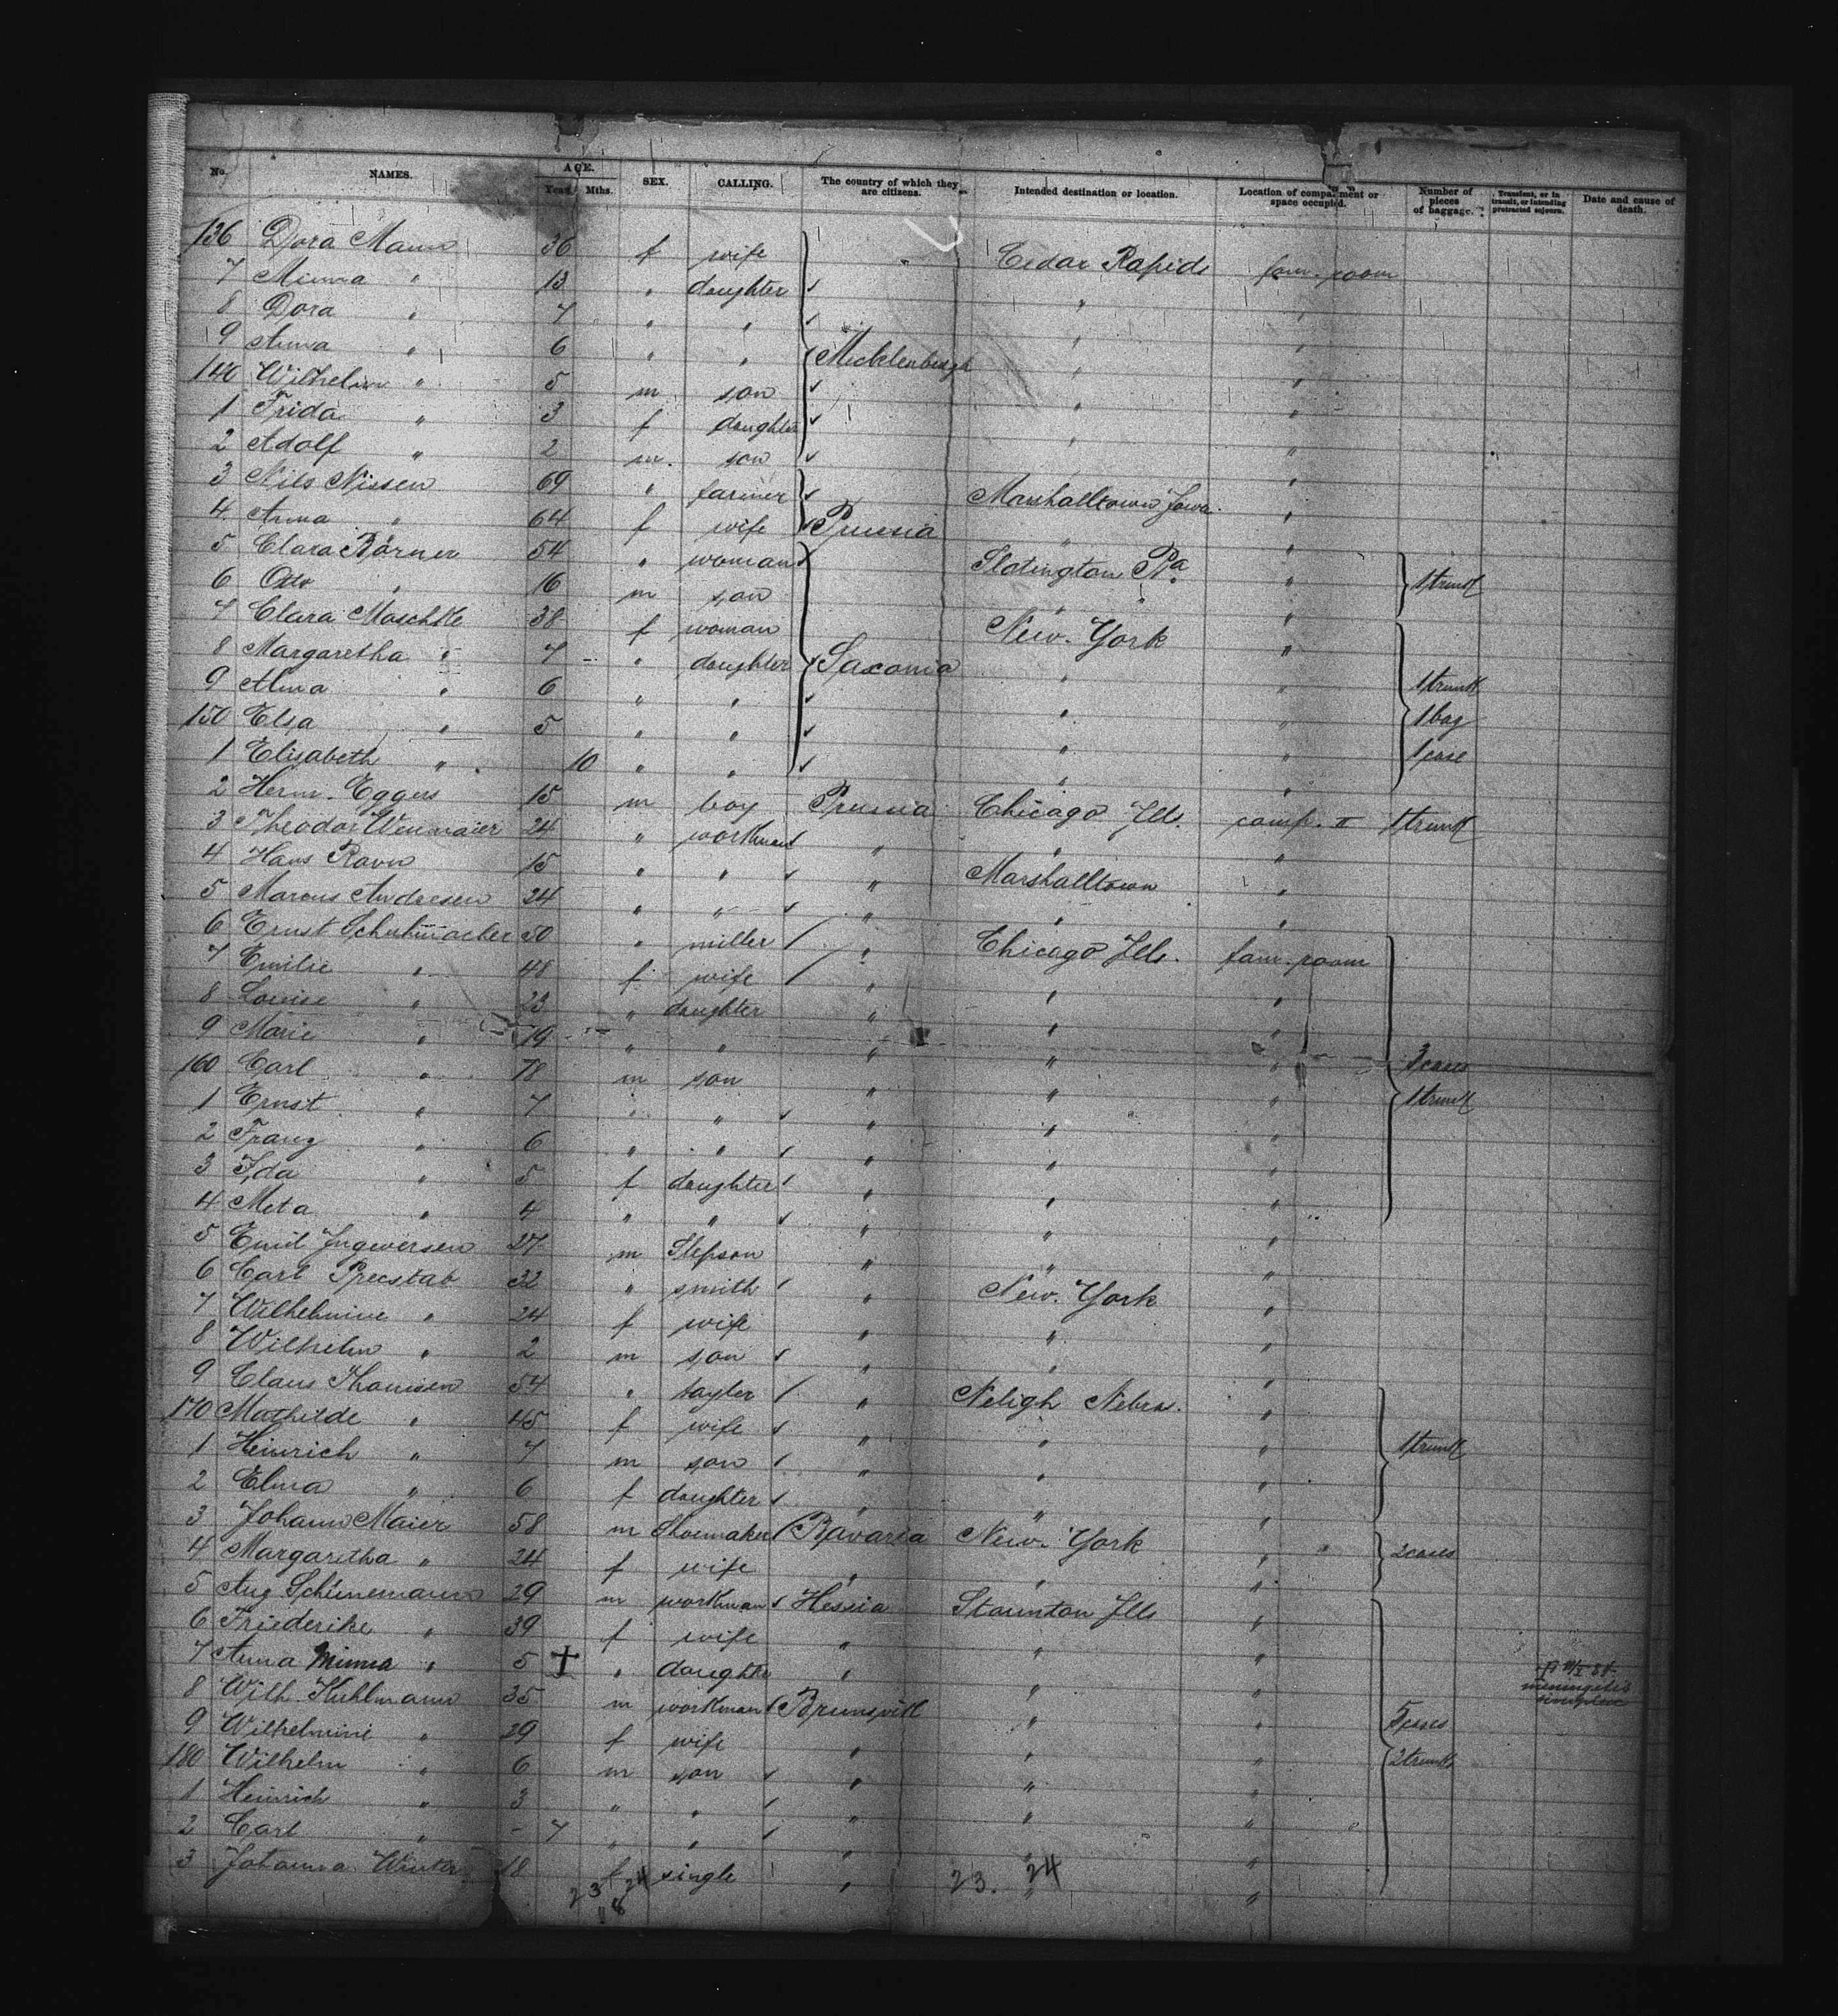 No. NAMES. AGE. Years Mths. SEX. CALLING. The country of which they are citizens. Intended destination or location. Location of compartment or space occupied. Number of pieces of baggage. Transient, or in transit, or intending protracted sojourn. Date and cause of death.
136 Dora Mann 36 f wife Cedar Rapids fam. room
7 Minna " 13 " daughter " "
8 Dora " 7 " " " "
9 Anna " 6 " " Mecklenburgh " "
140 Wilhelm " 5 m son " "
1 Frida " 3 f daughter " "
2 Adolf " 2 m. son "
3 Nils Nissen 69 " farmer Marshalltown Iowa. "
4 Anna " 64 f wife Prussia " "
5 Clara Körner 54 " woman Slatington Pa. " 1 trunk
6 Otto " 16 m son " "
7 Clara Maschke 38 f woman New. York "
8 Margaretha " 7 " daughter Saxonia " "
9 Alma " 6 " " " " 1 trunk
150 Elsa " 5 " " " " 1 bag
1 Elisabeth " 10 " " " " 1 case
2 Herm. Eggers 15 m boy Prussia Chicago Ills. comp. II 1 trunk
3 Theodor 24 " workman " " "
4 Hans Ravn 15 " " " Marshalltown "
5 Marcus Andresen 24 " " " " "
6 Ernst Schuhmacher 50 " miller " Chicago Ills. fam. room
7 Emilie " 48 f wife " " "
8 Louise " 23 " daughter " " "
9 Marie " 19 " " " " " cases
160 Carl " 18 m son " " " 1 trunk
1 Ernst " 7 " " " " "
2 Franz " 6 " " " " "
3 Ida " 5 f daughter " " "
4 Meta " 4 " " " " "
5 Emil Ingwersen 27 m Stepson " " "
6 Carl Preestab 32 " smith " New. York "
7 Wilhelmine " 24 f wife " " "
8 Wilhelm " 2 m son " " "
9 Claus Thomsen 54 " tayler " Neligh Nebra. "
170 Mathilde " 45 f wife " " " 1 trunk
1 Heinrich " 7 m son " " "
2 Elma " 6 f daughter " " "
3 Johann Maier 58 m Shoemaker Bavaria New. York " 2 cases
4 Margaretha " 24 f wife " " "
5 Aug Schünemann 29 m workman Hessia Staunton Ills "
6 Friederike " 39 f wife " " "
7 Anna Minna " 5 † " daughter " " meningitis simplex
8 Wilh. Kuhlmann 35 m workman Brunsvik " " 5 cases
9 Wilhelmine " 29 f wife " " " 2 trunks
180 Wilhelm " 6 m son " " "
1 Heinrich " 3 " " " " "
2 Carl " - 7 " " " " "
3 Johanna Winter 18 f single " " "
23 24 23. 24
8